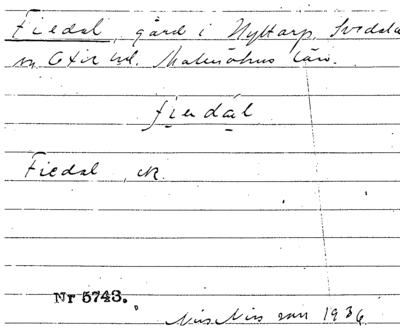 Fiedal, gård i Hyltarp, Svedala
sn Oxie hd. Malmöhus län.
fiedal
Fiedal, ck.
Nr 5743.
Nils Nilsson 1936